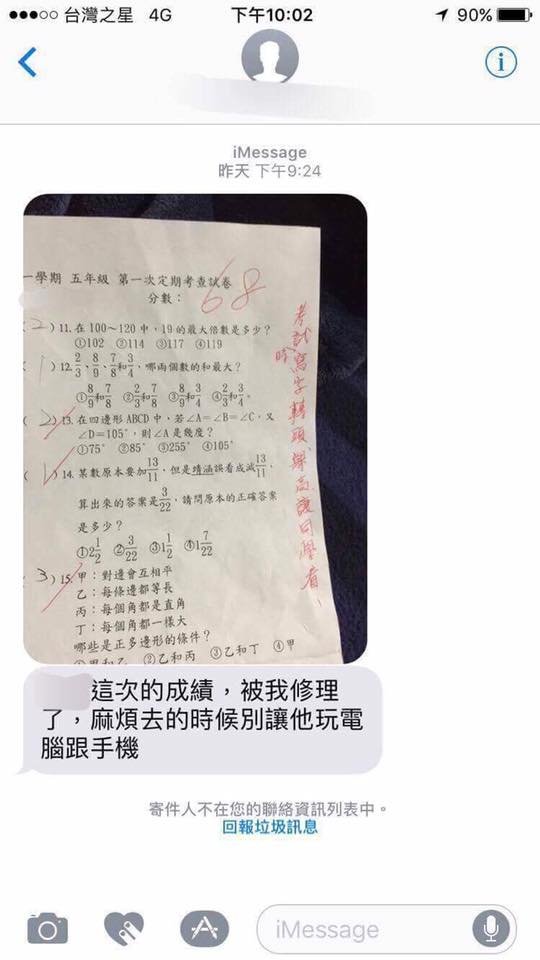 台灣之星 4G 下午10:02 90%
iMessage
昨天 下午9:24
一學期 五年級 第一次定期考查試卷
分數：68
考試時寫字轉頭
讓同學看
2)11.在100~120中，19的最大倍數是多少？
①102 ②114 ③117 ④119
1)12. 2/3、8/9、7/8和3/4，哪兩個數的和最大？
①8/9和7/8 ②2/3和7/8 ③8/9和3/4 ④2/3和3/4。
(2)13.在四邊形ABCD中，若∠A=∠B=∠C，又
∠D=105°，則∠A是幾度？
①75° ②85° ③255° ④105°
(1)14.某數原本要加13/11，但是靖涵誤看成減13/11，
算出來的答案是3/22，請問原本的正確答案
是多少？
①2 1/2 ②3/22 ③1 1/2 ④1 7/22
3)15.甲：對邊會互相平
乙：每條邊都等長
丙：每個角都是直角
丁：每個角都一樣大
哪些是正多邊形的條件？
①甲和乙 ②乙和丙 ③乙和丁 ④甲
這次的成績，被我修理
了，麻煩去的時候別讓他玩電
腦跟手機
寄件人不在您的聯絡資訊列表中。
回報垃圾訊息
iMessage